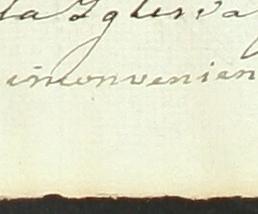 la Iglesia
inconvenien